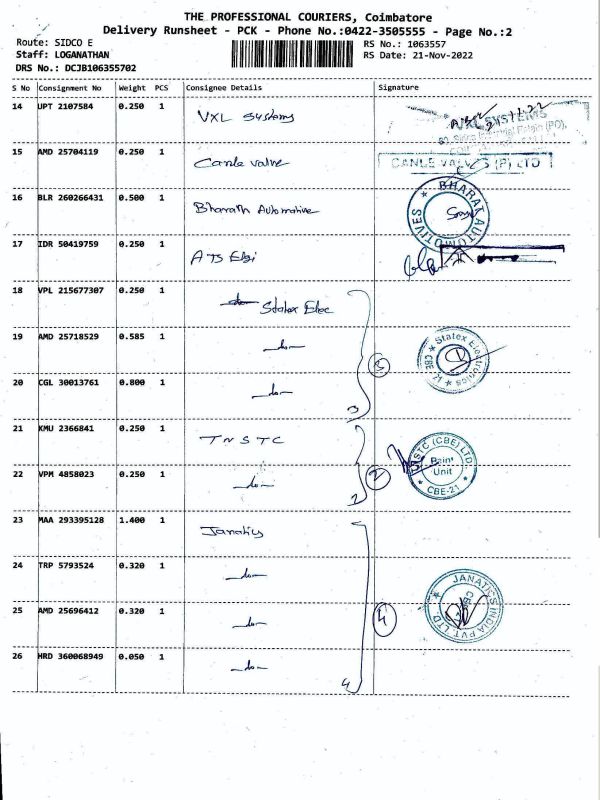 THE PROFESSIONAL COURIERS, Coimbatore
Delivery Runsheet - PCK - Phone No.:0422-3505555 - Page No.:2
Route: SIDCO E
RS No.: 1063557
Staff: LOGANATHAN
RS Date: 21-Nov-2022
DRS No.: DCJB106355702
S No Consignment No Weight PCS Consignee Details Signature
14 UPT 2107584 0.250 1 VXL Systems
VXL SYSTEMS
15 AMD 25704119 0.250 1 Canle valve
CANLE VALVES (P) LTD
16 BLR 260266431 0.500 1 Bharath Automotive
BHARAT AUTOMOTIVES
17 IDR 50419759 0.250 1 ATS Elgi
18 VPL 215677307 0.250 1 Statex Elec
19 AMD 25718529 0.585 1 -do-
3
Statex Electronics CBE
20 CGL 30013761 0.800 1 -do-
3
21 KMU 2366841 0.250 1 TNSTC
STC (CBE) LTD.
Unit
CBE-21
22 VPM 4858023 0.250 1 -do-
2
2
23 MAA 293395128 1.400 1 Janatics
24 TRP 5793524 0.320 1 -do-
JANATICS INDIA PVT LTD.
25 AMD 25696412 0.320 1 -do-
4
26 HRD 360068949 0.050 1 -do-
4